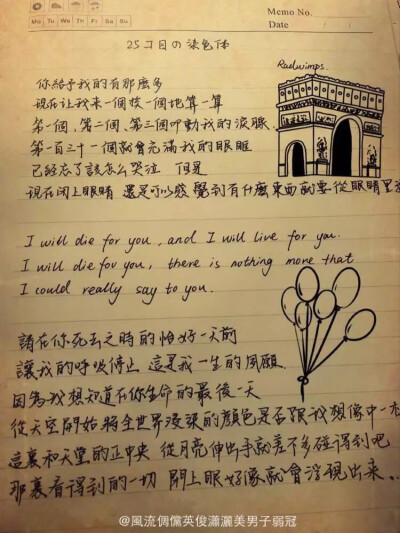 Memo No.
Mo Tu We Th Fr Sa Su
Date
25コ目の染色体
Radwimps.
你給予我的有那麼多
現在让我来一個接一個地算一算
第一個、第二個、第三個叩動我的淚腺
第一百三十一個就會充滿我的眼眶
已經忘了該怎么哭泣 但是
現在闭上眼睛 還是可以感覺到有什麼東西就要從眼睛里
I will die for you, and I will live for you.
I will die for you, there is nothing more that
I could really say to you.
請在你死去之時的恰好一天前
讓我的呼吸停止 這是我一生的夙願
因為我想知道在你生命的最後一天
從天空開始將全世界浸染的顏色是否跟我想像中一
這裏和天堂的正中央 從月亮伸出手就差不多碰得到吧
那裏看得到的一切 閉上眼好像就會浮現出來...
@風流倜儻英俊瀟灑美男子弱冠